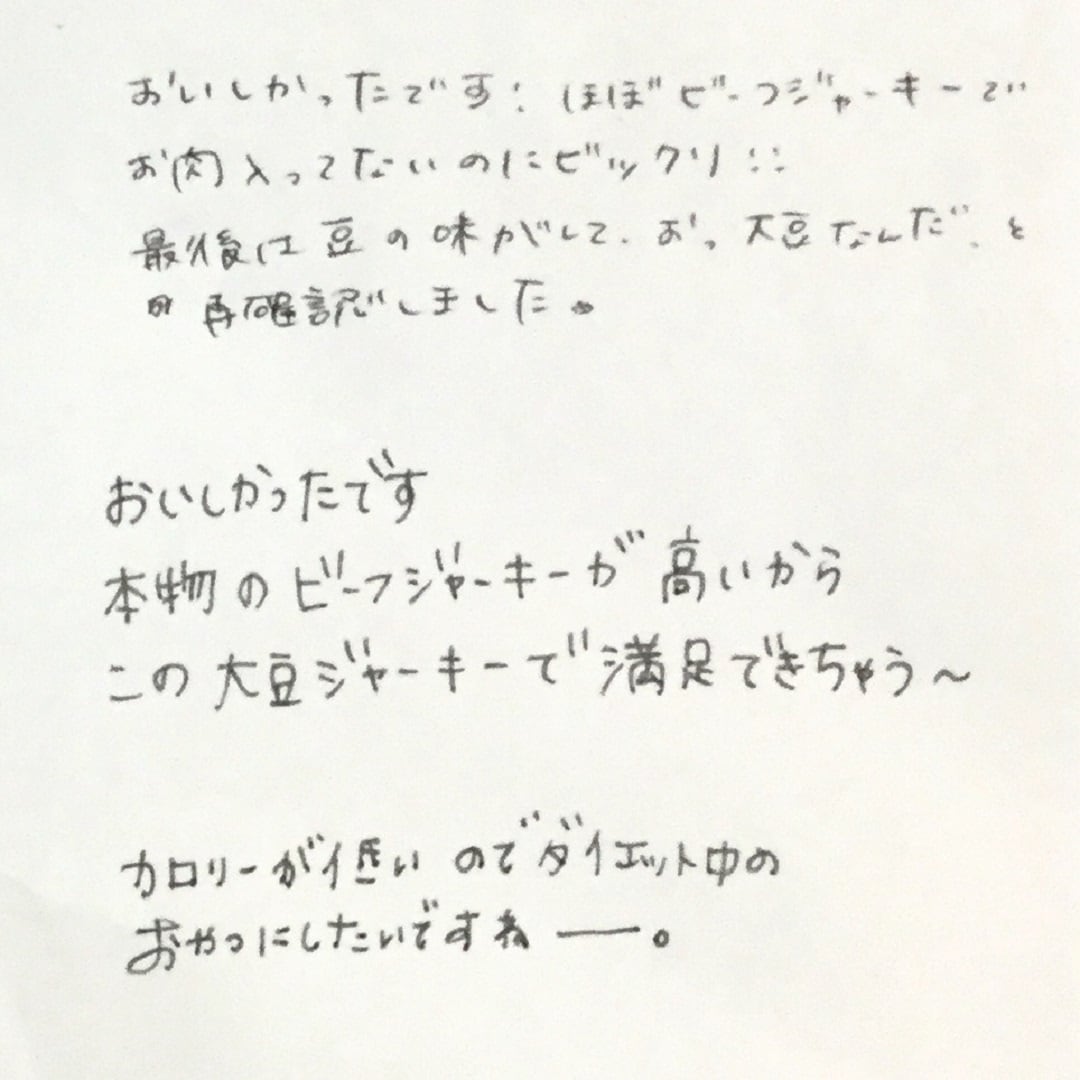 おいしかったです! ほぼビーフジャーキーで
お肉入ってないのにビックリ!!
最後は豆の味がして、おっ、大豆なんだ、と
再確認しました。
おいしかったです
本物のビーフジャーキーが高いから
この大豆ジャーキーで満足できちゃう〜
カロリーが低いのでダイエット中の
おやつにしたいですねー。